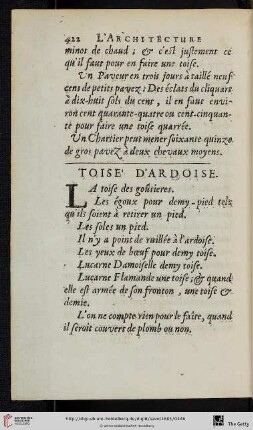 422 L'ARCHITECTURE
minot de chaud ; & c'est justement ce
qu'il faut pour en faire une toise.
Un Paveur en trois jours a taillé neuf
cens de petits pavez : Des éclats du cliquart
à dix-huit sols du cens, il en faut envi-
ron cent quarante-quatre ou cent-cinquan-
te pour faire une toise quarrée.
Un Chartier peut mener soixante quinze
de gros pavez à deux chevaux moyens.
TOISE' D'ARDOISE.
LA toise des goûtieres.
Les égoux pour demy-pied tels
qu'ils soient à retirer un pied.
Les soles un pied.
Il n'y a point de ruillée à l'ardoise.
Les yeux de bœuf pour demy toise.
Lucarne Damoiselle demy toise.
Lucarne Flamande une toise ; & quand
elle est armée de son fronton, une toise &
demie.
L'on ne compte rien pour le faîte, quand
il seroit couvert de plomb ou non.
The Getty